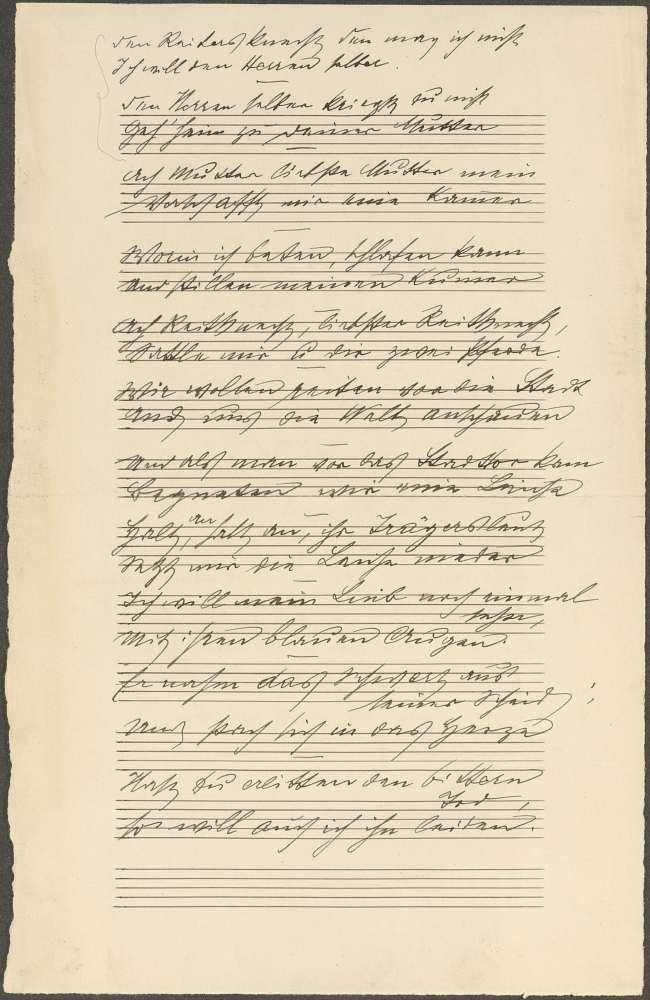 Den Reitersknecht den mag ich nicht
Ich will den Herren selber.
Den Herren selber kriegst du nicht
Geh' heim zu deiner Mutter
Ach Mutter liebste Mutter mein
Verschafft mir eine Kammer
Worin ich beten, schlafen kann
Und stillen meinen Kummer
Ach Reitknecht, liebster Reitknecht,
Sattle mir u dir zwei Pferde.
Wir wollen reiten vor die Stadt
Und uns die Welt anschauen
Und als man vor das Stadttor kam
Begneten wir eine Leiche
Halt, halt an, ihr Trägersleut
Setzt mir die Leiche nieder
Ich will mein Lieb noch einmal
sehn,
Mit ihren blauen Augen.
Er nahm das Schwert aus
seiner Scheid,
Und stach sich in das Herze
Hast du erlitten den bittern
Tod,
So will auch ich ihn leiden.